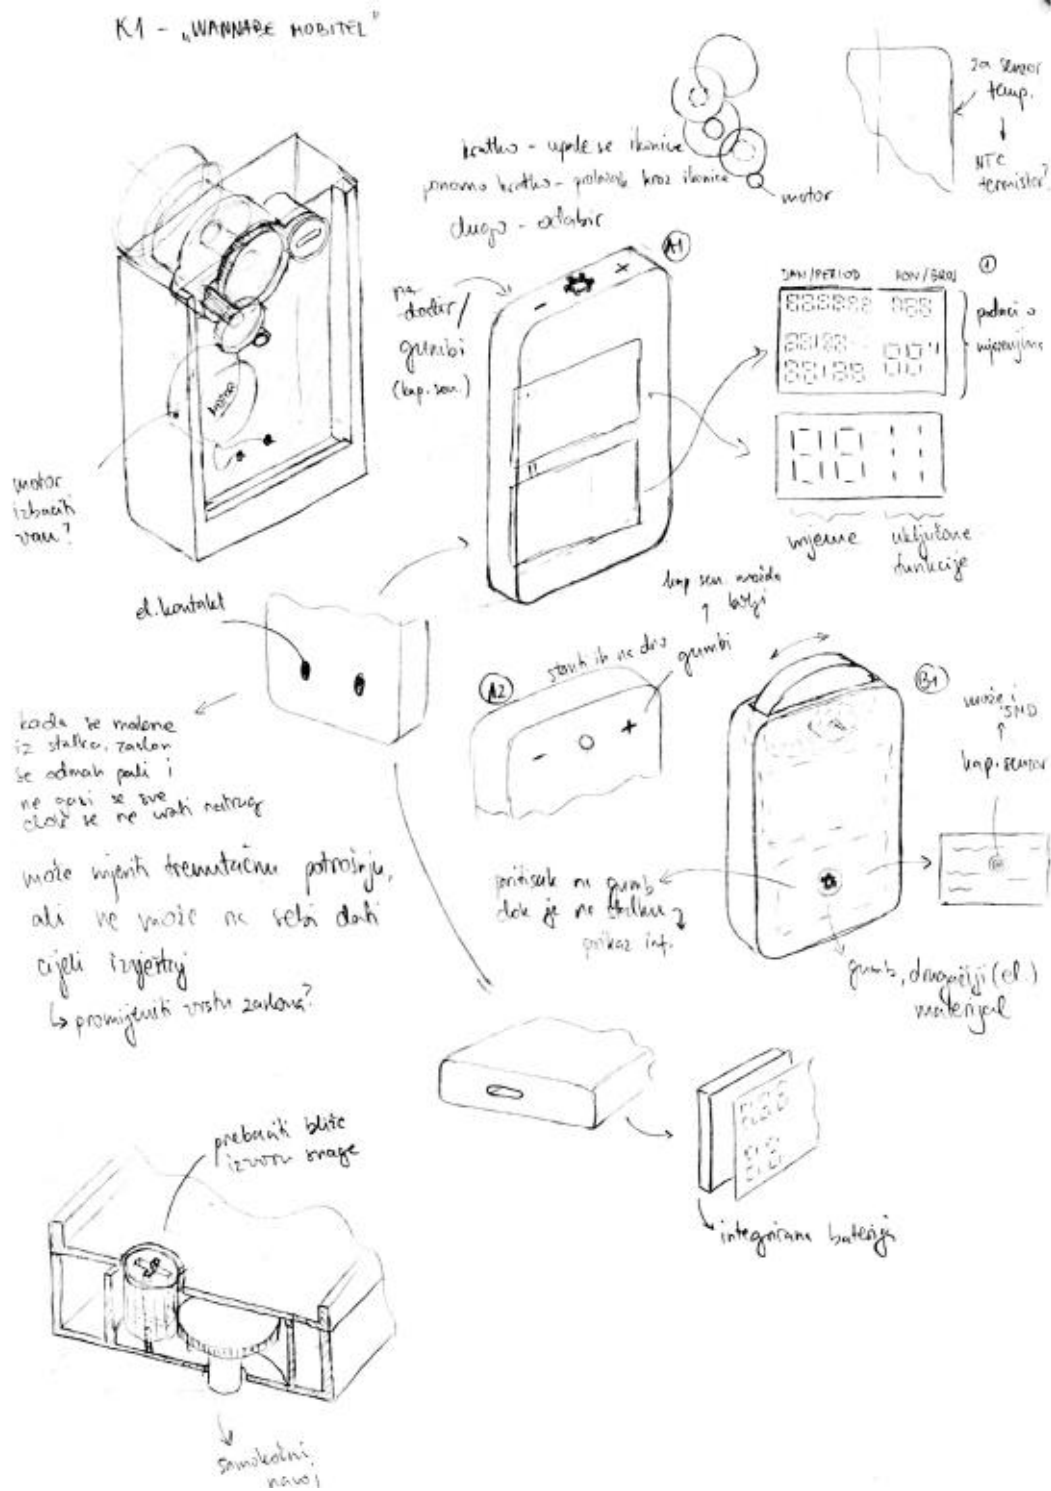 K1 - „WANNABE MOBITEL"
za senzor
temp.
NTC
termistor?
kratko - upale se ikonice
ponovno kratko - prolazak kroz ikonice
dugo - odabir
motor
A1
na
dodir/
gumbi
(kap. sen.)
- +
DAN/PERIOD KON/BROJ
1
podaci o
mjerenjima
vrijeme
uključene
funkcije
MOTOR
motor
izbaciti
van?
el. kontakt
kada se makne
iz stalka, zaslon
se odmah pali i
ne gasi se sve
dok se ne vrati natrag
može mjeriti trenutačnu potrošnju,
ali ne može na sebi dati
cijeli izvještaj
↳ promijeniti vrstu zaslona?
kap sen. možda
bolji
gumbi
A2
- +
B1
može i
SMD
kap. senzor
pritisak na gumb
dok je na stalku
prikaz inf.
gumb, drugačiji (el.)
materijal
integrirana baterija
prebaciti bliže
izvoru snage
samokočni
navoj